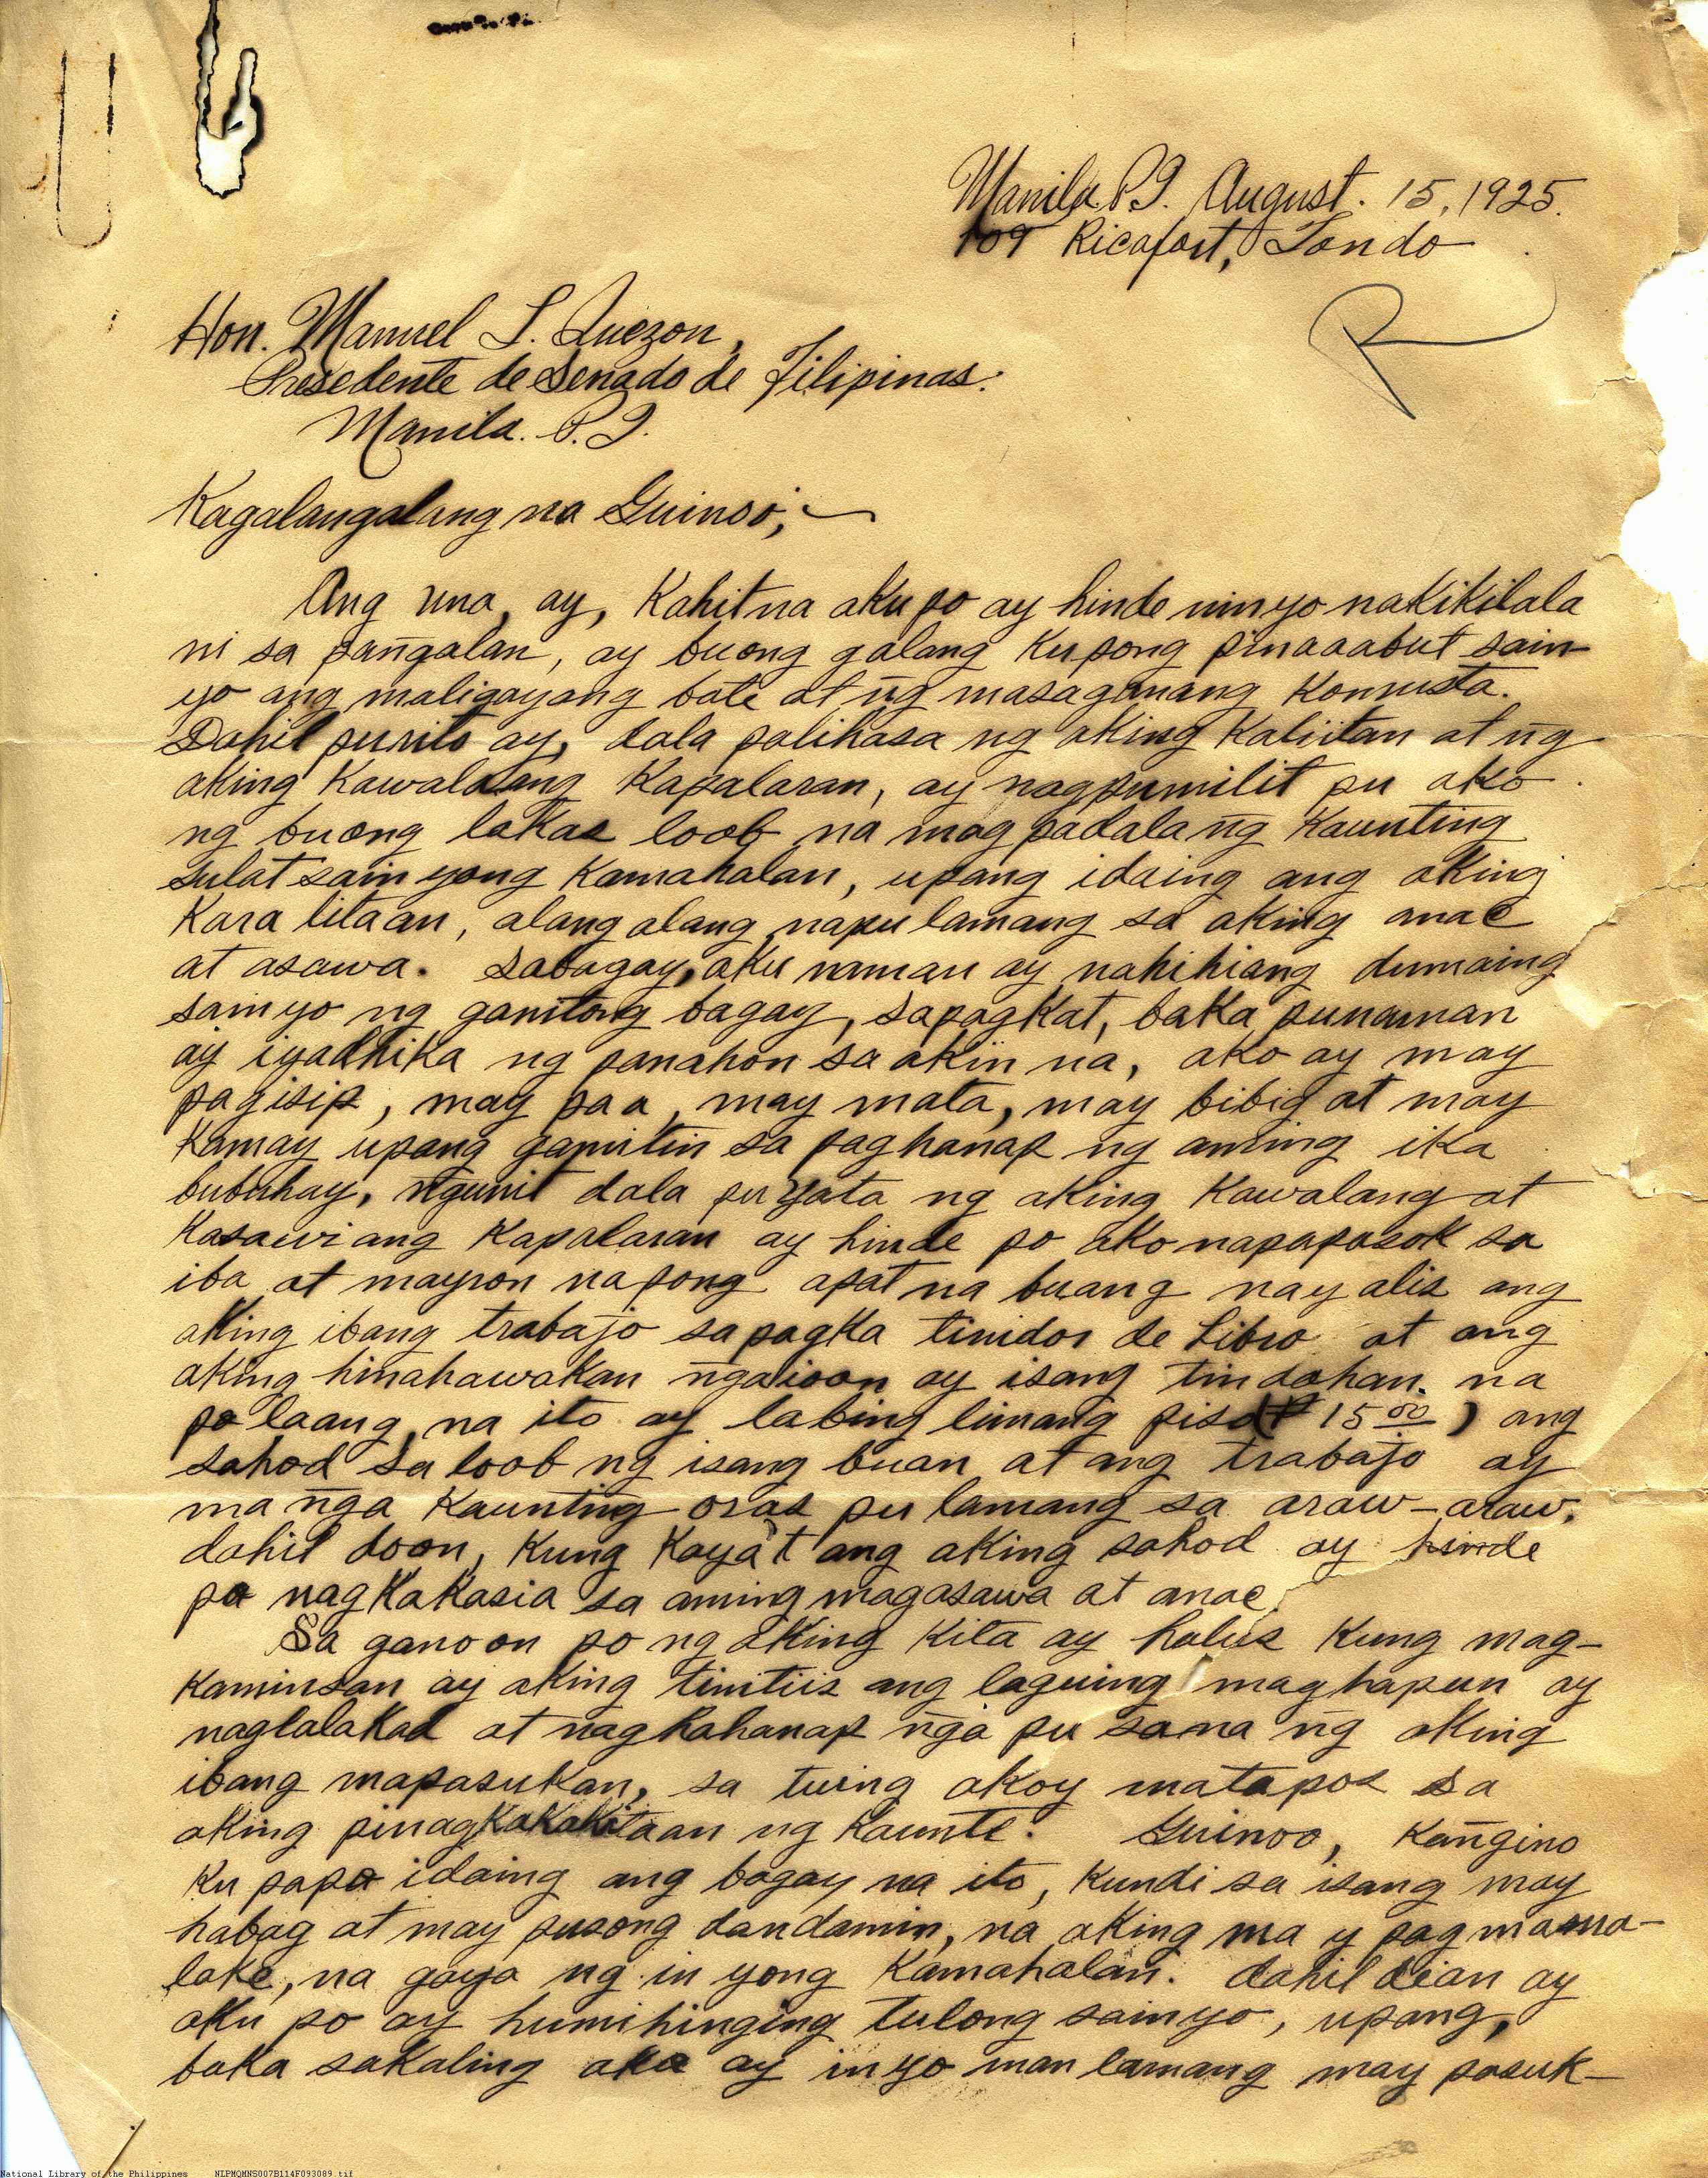 Manila P.I. August. 15, 1925.
109 Ricafort, Tondo
R
Hon. Manuel L. Quezon,
Presedente de Senado de Filipinas.
Manila. P.I.
Kagalangalang na Guinoo;
Ang una, ay, Kahit na aku po ay hinde ninyo nakikilala
ni sa pañgalan, ay buong galang Ku pong pinaaabut sain-
yo ang maligayang bate at ñg masaganang Komusta.
Dahil purito ay, dala palihasa ng aking Kaliitan at ñg
aking Kawalaang Kapalaran, ay nagpumilit pu ako
ng buong lakas loob na mag padala ñg Kaunting
sulat sain yong Kamahalan, upang idaing ang aking
Kara litaan, alang alang napu lamang sa aking anac
at asawa. Sabagay, aku naman ay nahihiang dumaing
sain yo ng ganitong bagay, sapagkat, baka punaman
ay iyadhika ng panahon sa akin na, ako ay may
pagisip, may paa, may mata, may bibig at may
Kamay upang gamitin sa paghanap ng aming ika
bubuhay, ñgunit dala pu yata ng aking Kawalang at
Kasawi ang Kapalaran ay hinde po ako napapasok sa
iba at mayron napong apat na buang nag alis ang
aking ibang trabajo sa pagka tinidor de Libro at ang
aking hinahawakan ñgaioon ay isang tindahan. na
po laang na ito ay labing limang piso (₱ 15 00) ang
sahod sa loob ng isang buan at ang trabajo ay
ma ñga Kaunting oras pu lamang sa araw-araw,
dahil doon, Kung Kaya't ang aking sahod ay hinde
po nagkakasia sa aming magasawa at anac.
Sa ganoon po ng aking Kita ay halus Kung mag-
kaminsan ay aking tinitiis ang laguing maghapun ay
naglalakad at nagkahanap ñga pu sana ñg aking
ibang mapasukan, sa tuing akoy matapos sa
aking pinagkakakitaan ng Kaunte. Guinoo, Kañgino
Ku papo idaing ang bagay na ito, Kundi sa isang may
habag at may pusong dandamin, na aking ma y pagmama-
lake, na gaya ng in yong Kamahalan. dahil dian ay
aku po ay humihinging tulong sainyo, upang,
baka sakaling ako ay inyo man lamang may pasuk-
National Library of the Philippines NLPMQMNS007B114F093089.tif